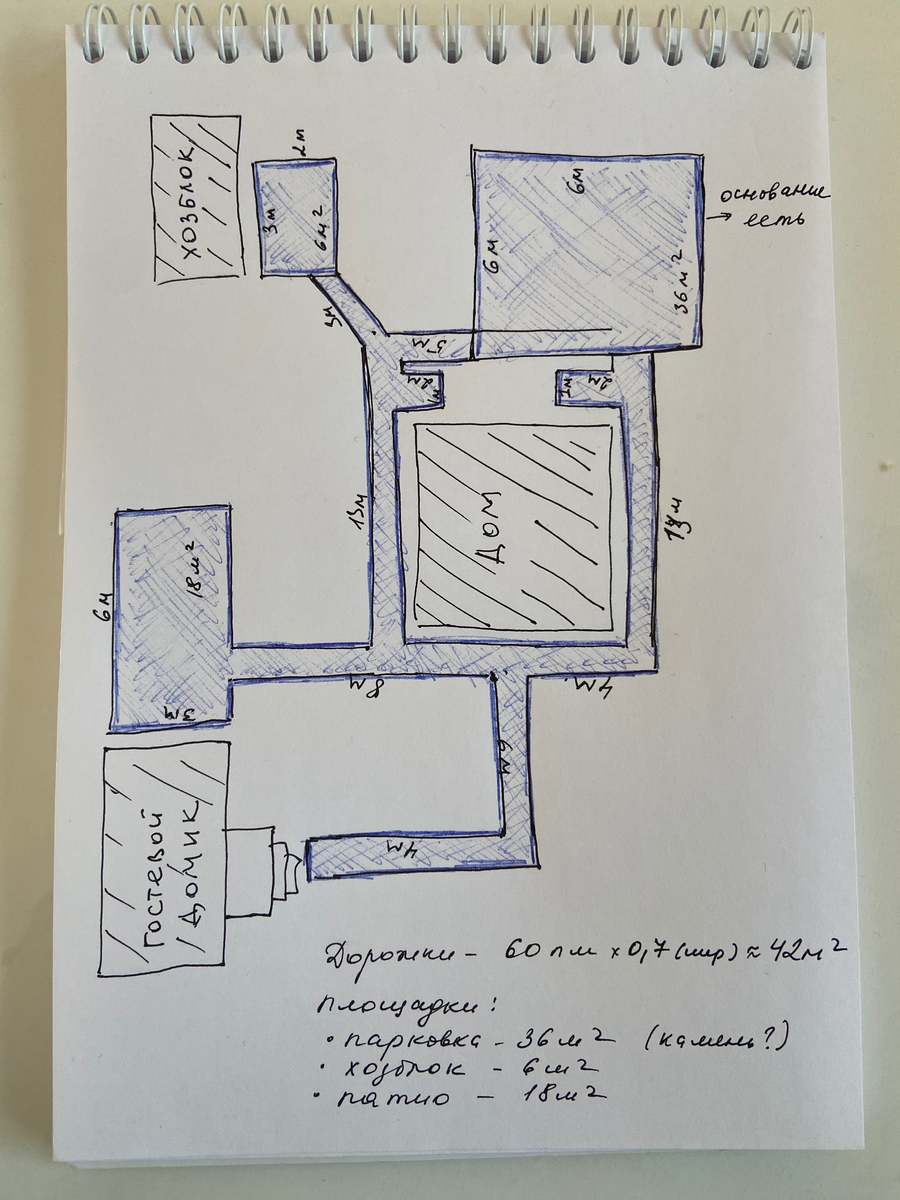 ХОЗБЛОК
2м
3м
6м²
3м
6м
6м
36м²
основание
→ есть
5м
2м
1м
1м
2м
13м
ДОМ
6м
18м²
3м
8м
4м
6м
4м
ГОСТЕВОЙ
ДОМИК
Дорожки – 60 пм х 0,7 (шир) ≈ 42м²
площадки:
• парковка – 36м² (камень?)
• хозблок – 6м²
• патио – 18м²